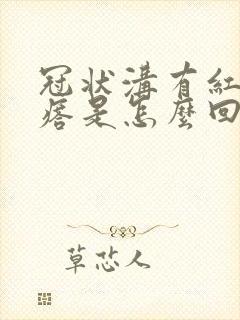 冠状溝有紅
痞是怎麼回
草芯人